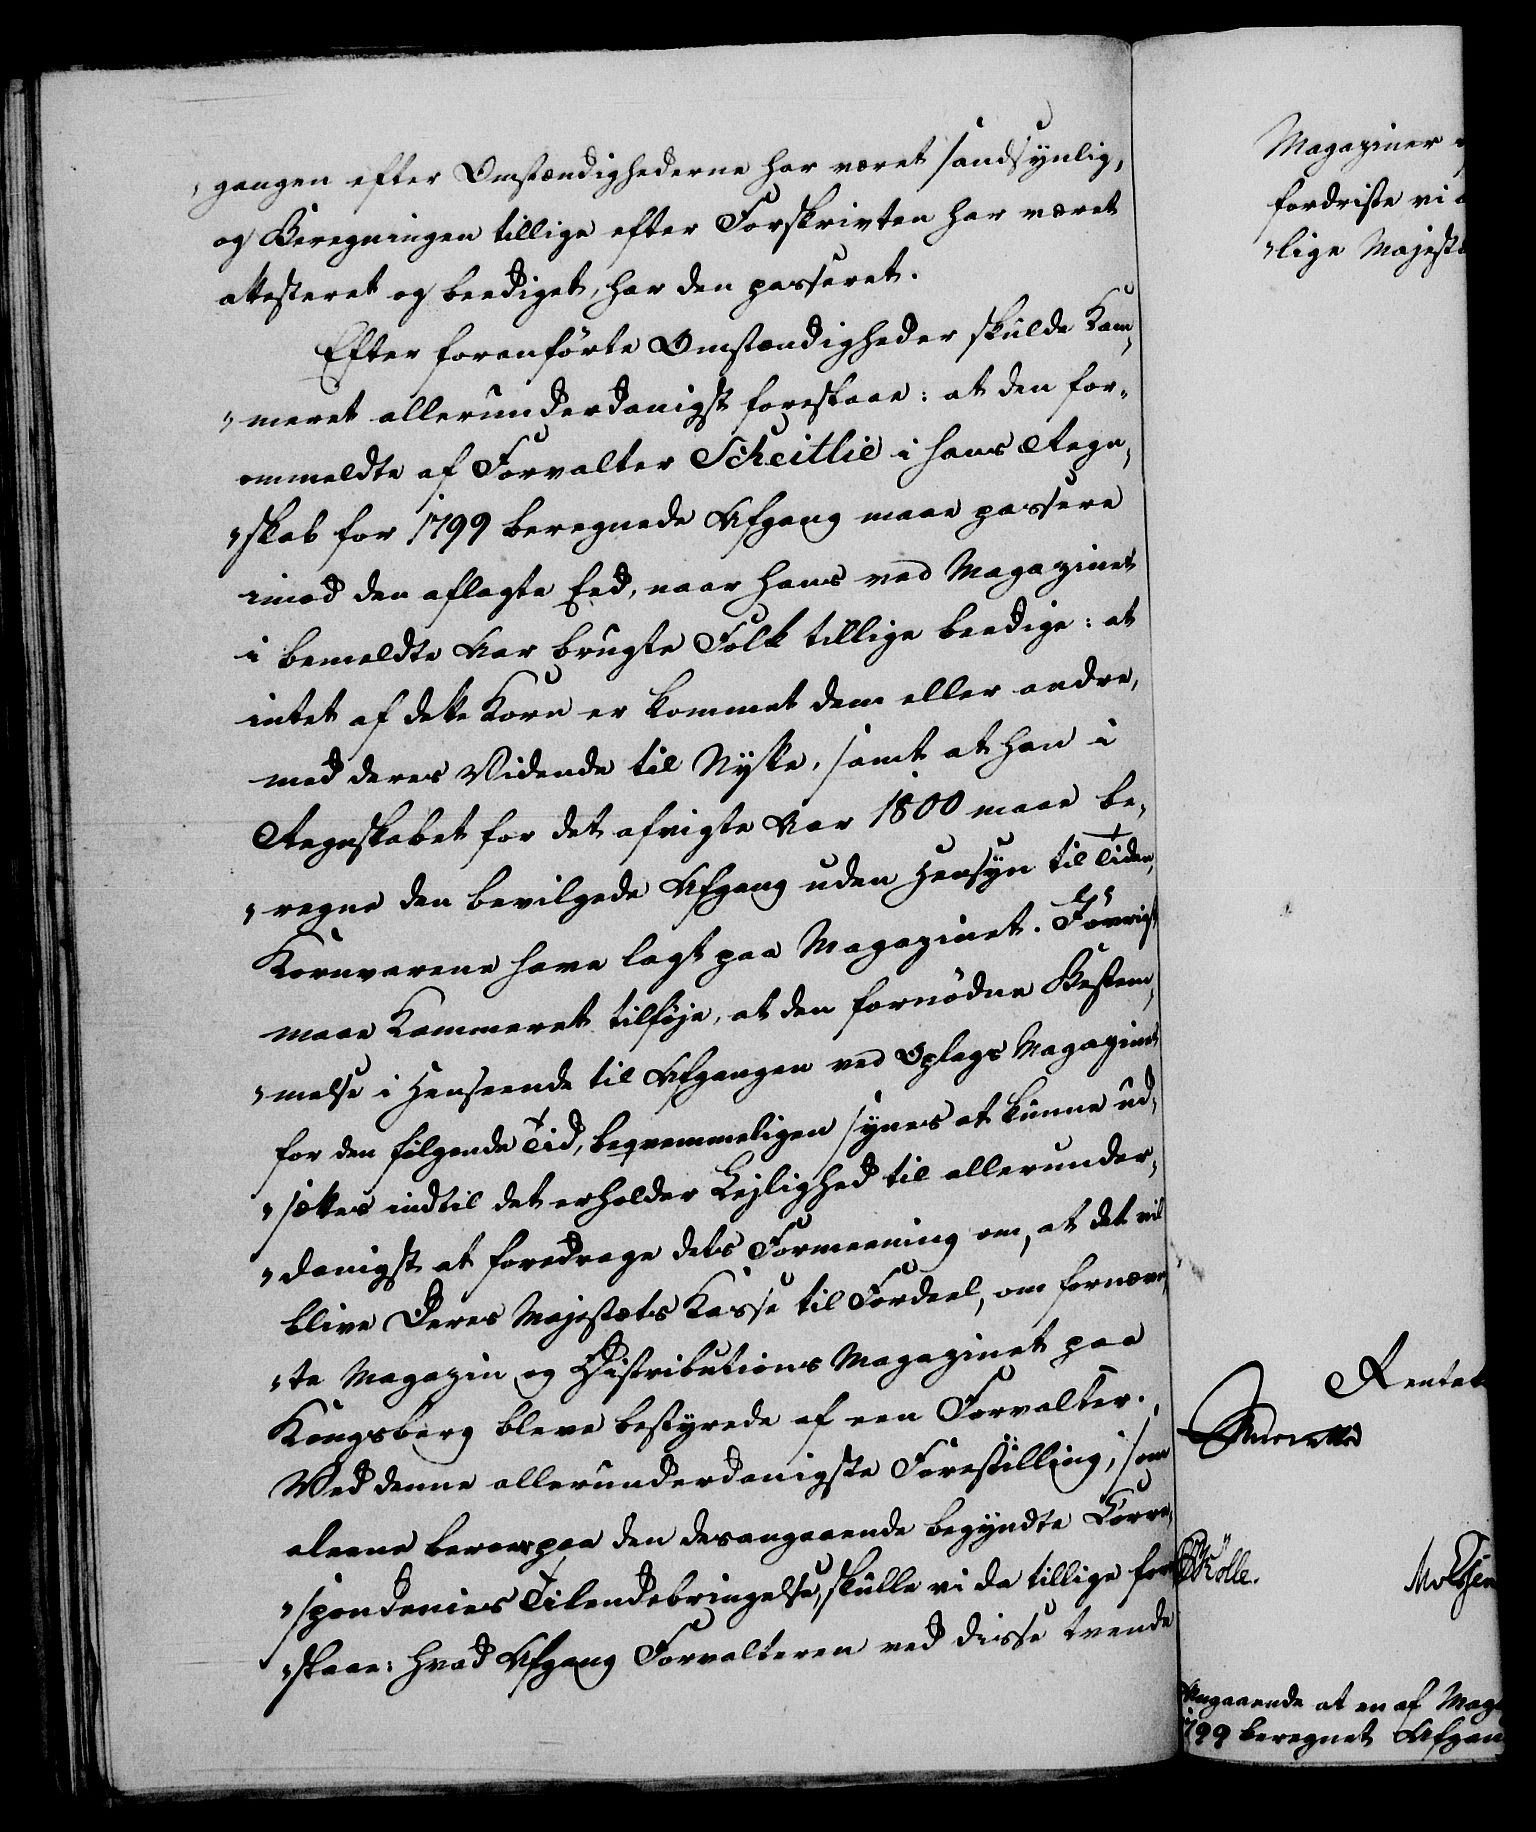 „gangen efter Omstændighederne har været sandsynlig,
og Beregningen tillige efter Forskrivten har været
attesteret og beediget, har den passeret.
Efter foranførte Omstændigheder skulde Kam„
„meret allerunderdanigst foreslaae: at den for„
ommeldte af Forvalter Scheitlie i hans Regn„
„skab for 1799 beregnede Afgang maae passere
imod den aflagte Eed, naar hans ved Magazinet
i bemeldte Aar brugte Folk tillige beedige: at
intet af dette Korn er kommet dem eller andre,
med deres Vidende til Nytte, samt at han i
Regnskabet for det afvigte Aar 1800 maae be„
„regne den bevilgede Afgang uden Hensyn til Tiden,
Kornvarene have lagt paa Magazinet. Iøvrigt
maae Kammeret tilføje, at den fornødne Bestem„
„melse i Henseende til Afgangen ved Oplags Magazinet
for den følgende Tid, beqvemmeligen synes at kunne ud„
„sættes indtil det erholder Lejlighed til allerunder„
„danigst at foredrage dets Formeening om, at det vil
blive Deres Majestæts Kasse til Fordeel, om fornævn„
„te Magazin og Distributions Magazinet paa
Kongsberg bleve bestyrede af een Forvalter.
Ved denne allerunderdanigste Forestilling, som
alene beroer paa den desangaaende begyndte Corre„
„spondences Tilendebringelse, skulle vi da tillige fore„
„slaae: hvad Afgang Forvalteren ved disse tvende
Magaziner
fordriste vi
„lige Majest
Rentek
Kølle.
Angaaende at en af Mag
1799 beregnet Afgan